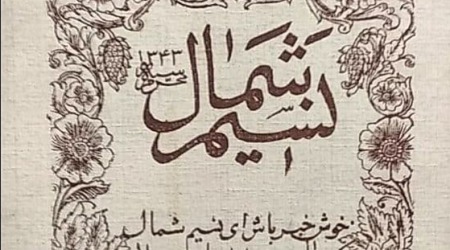 ۱۳۴۳
نسیم شمال
خوش خبر باش ای نسیم شمال